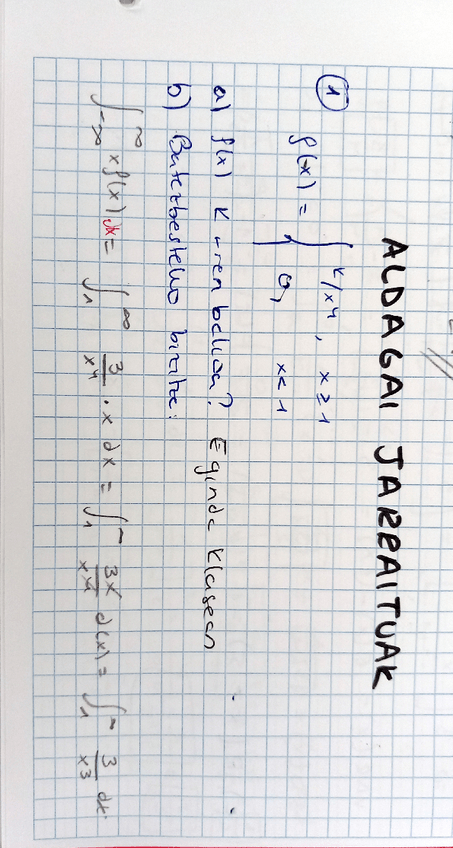 ALDAGAI JARRAITUAK
①
f(x) = { k/x⁴, x ≥ 1
0, x < 1
a) f(x) K-ren balioa? Eginda klasean
b) Batezbesteko bizitza:
∫_{-∞}^{∞} x f(x) dx = ∫_1^∞ 3/x⁴ · x dx = ∫_1^∞ 3x/x⁴ d(x) = ∫_1^∞ 3/x³ dx